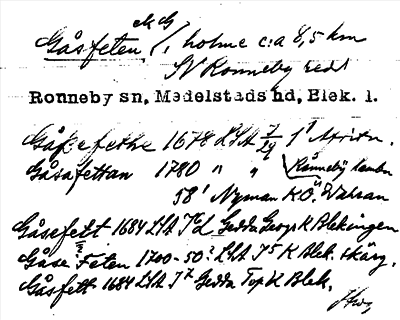 Gåsfeten /, holme c:a 8,5 km
SV Ronneby redd
Ronneby sn, Medelstads hd, Blek. l.
Gåsefethe 1678 LSA
Gåsafettan 1780 " " Ronneby hamn
58' Nyman K.Ö.
Gåsefett 1684 LSA Gedda Geogr K Blekingen
Gåse Feten 1700-50? LSA K Blek. skärg.
Gåsfett 1684 LSA Gedda Top K Blek.